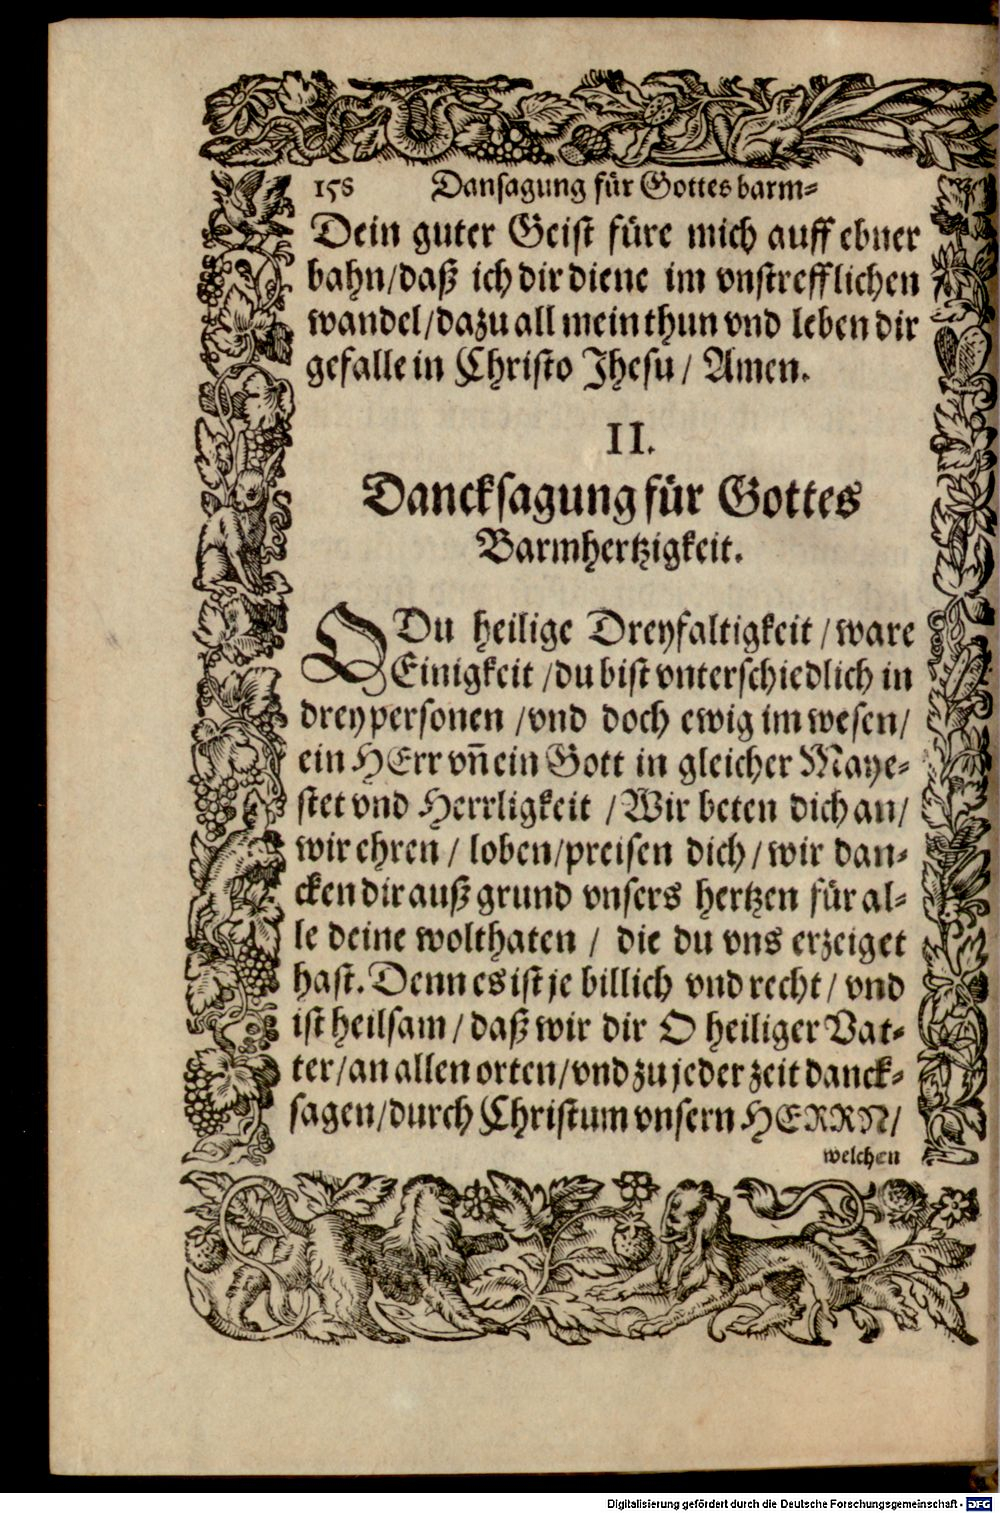 158 Dansagung für Gottes barm⸗
Dein guter Geist füre mich auff ebner
bahn/daß ich dir diene im vnstrefflichen
wandel/dazu all mein thun vnd leben dir
gefalle in Christo Jhesu/ Amen.
II.
Dancksagung für Gottes
Barmhertzigkeit.
O Du heilige Dreyfaltigkeit/ware
Einigkeit/du bist vnterschiedlich in
drey personen/vnd doch ewig im wesen/
ein HErr vñ ein Gott in gleicher Maye⸗
stet vnd Herrligkeit/Wir beten dich an/
wir ehren/loben/preisen dich/wir dan⸗
cken dir auß grund vnsers hertzen für al⸗
le deine wolthaten/die du vns erzeiget
hast. Denn es ist je billich vnd recht/vnd
ist heilsam/daß wir dir O heiliger Vat⸗
ter/an allen orten/vnd zu jeder zeit danck⸗
sagen/durch Christum vnsern HERRN/
welchen
Digitalisierung gefördert durch die Deutsche Forschungsgemeinschaft - DFG